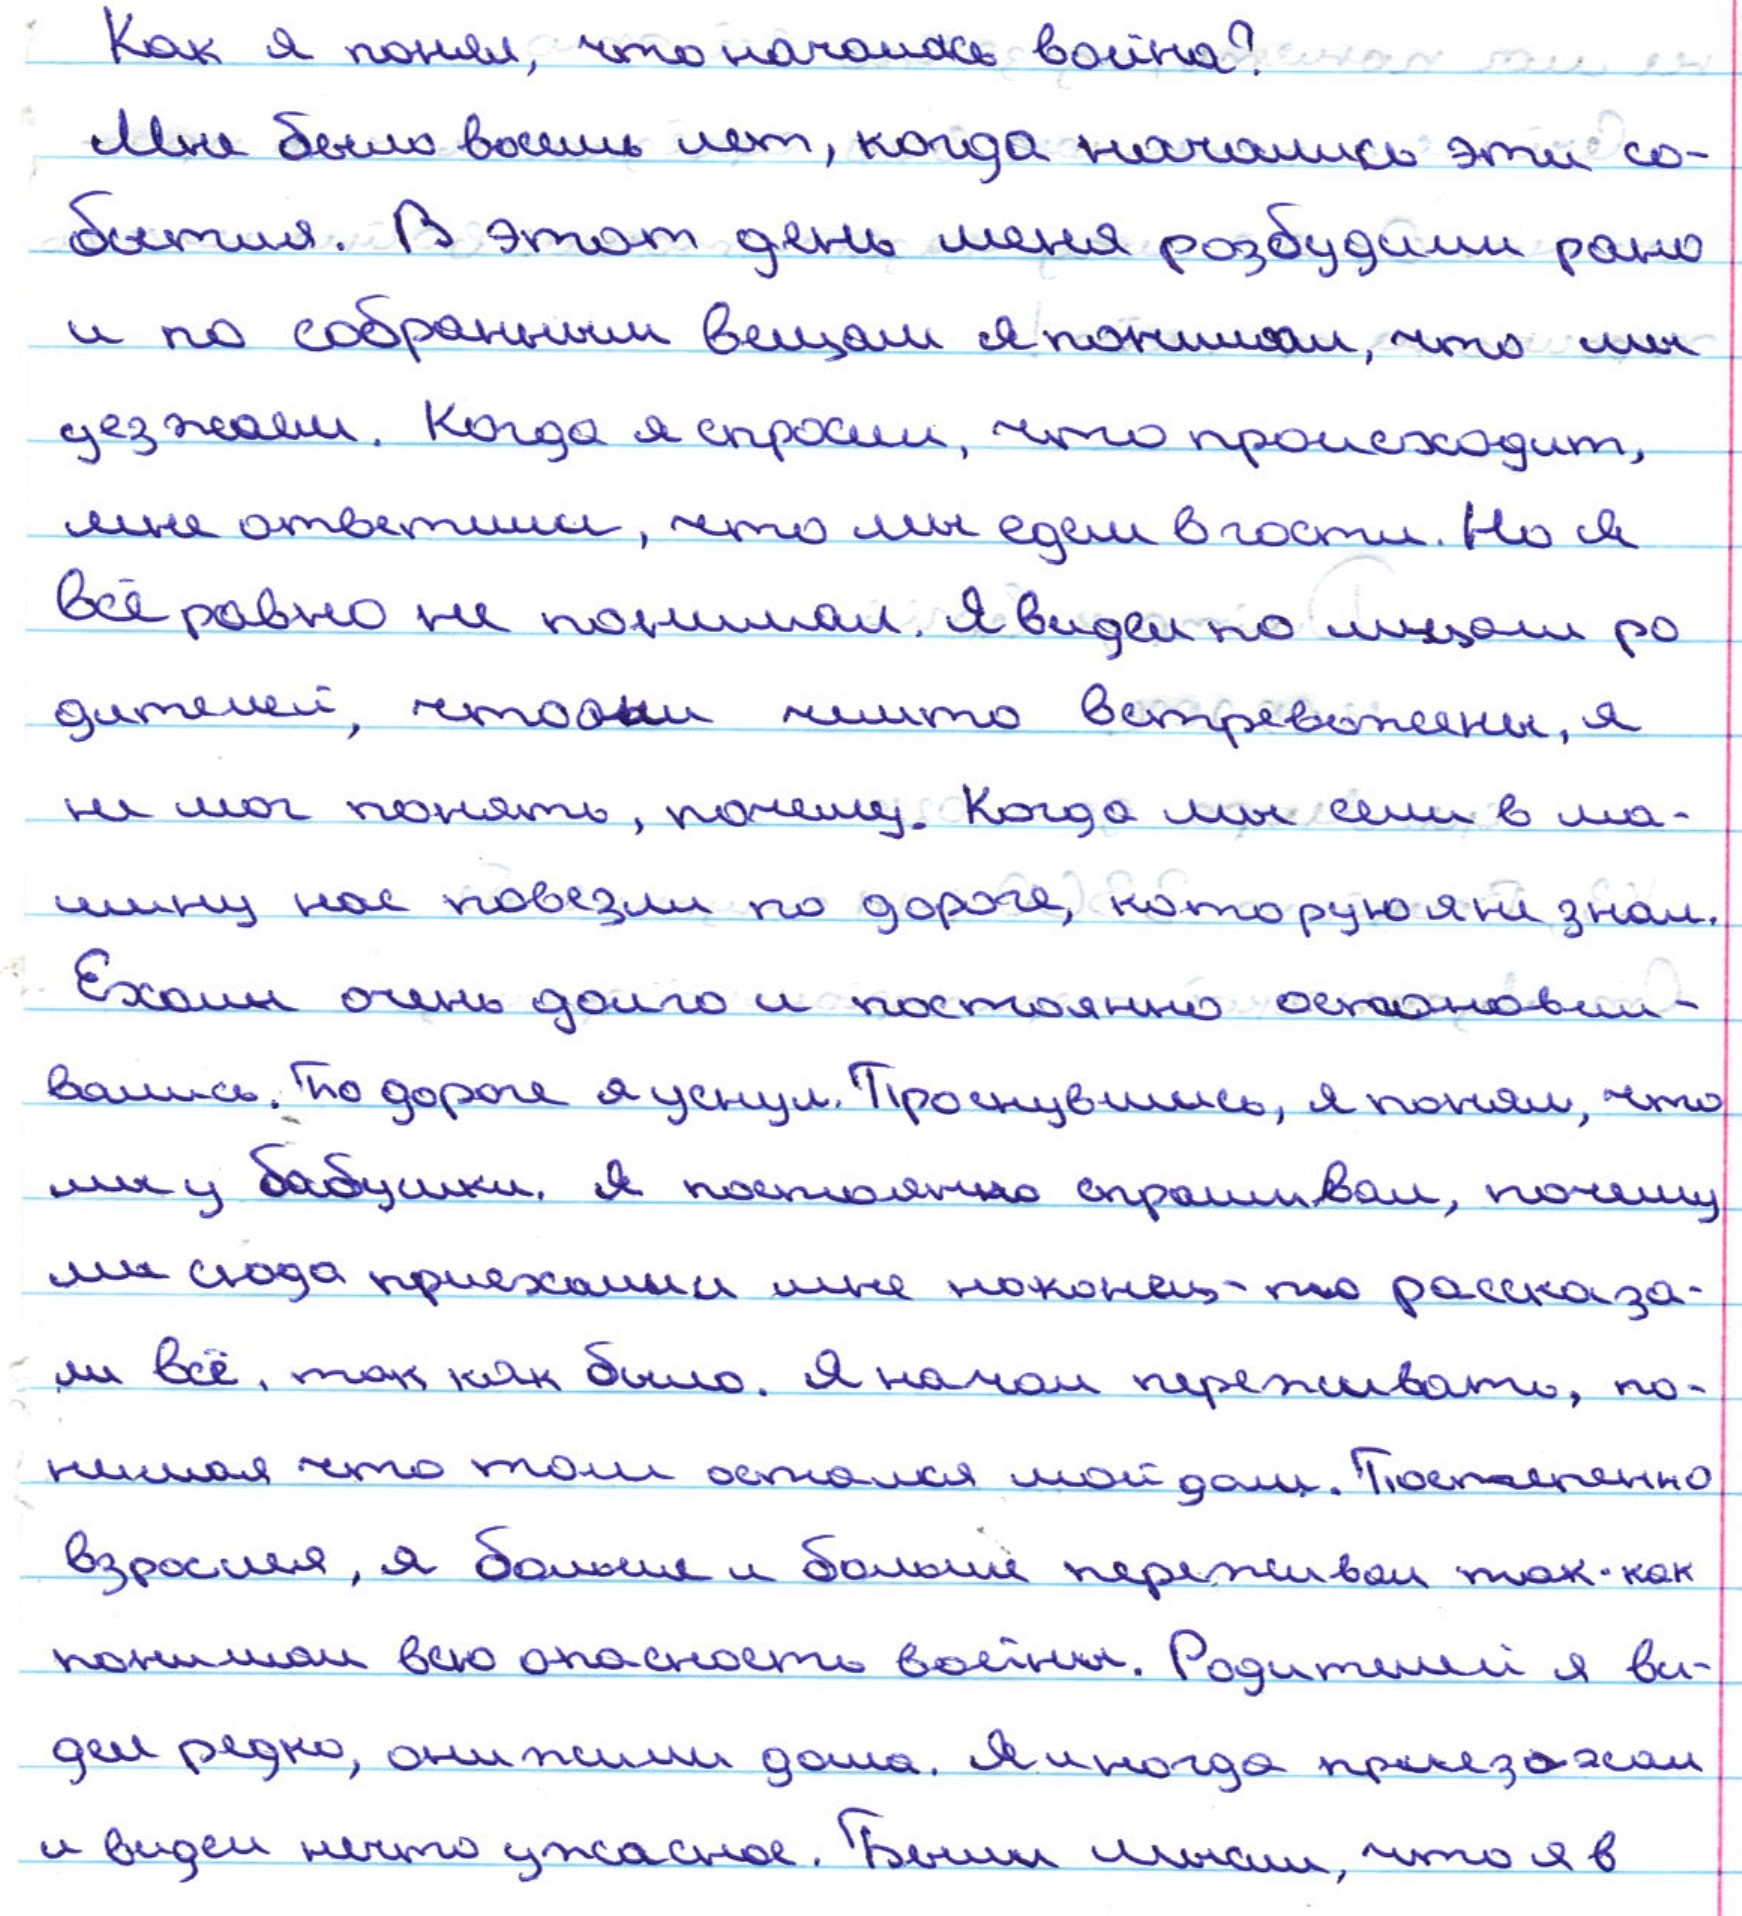 Как я понял, что началась война?
Мне было восемь лет, когда начались эти со-
бытия. В этот день меня розбудили рано
и по собранным вещам я понимал, что мы
уезжаем. Когда я спросил, что происходит,
мне ответили, что мы едем в гости. Но я
всё равно не понимал. Я видел по лицам ро
дителей, что они чемто встревожены, я
не мог понять, почему. Когда мы сели в ма-
шину нас повезли по дороге, которую я не знал.
Ехали очень долго и постоянно останови-
вались. По дороге я уснул. Проснувшись, я понял, что
мы у бабушки. Я постоянно спрашивал, почему
мы сюда приехали и мне наконец-то рассказа-
ли всё, так как было. Я начал переживать, по-
нимая что там остался мой дом. Постепенно
взрослея, я больше и больше переживал так-как
понимал всю опасность войны. Родителей я ви-
дел редко, они жили дома. Я иногда приезжал
и видел нечто ужасное. Были мысли, что я в